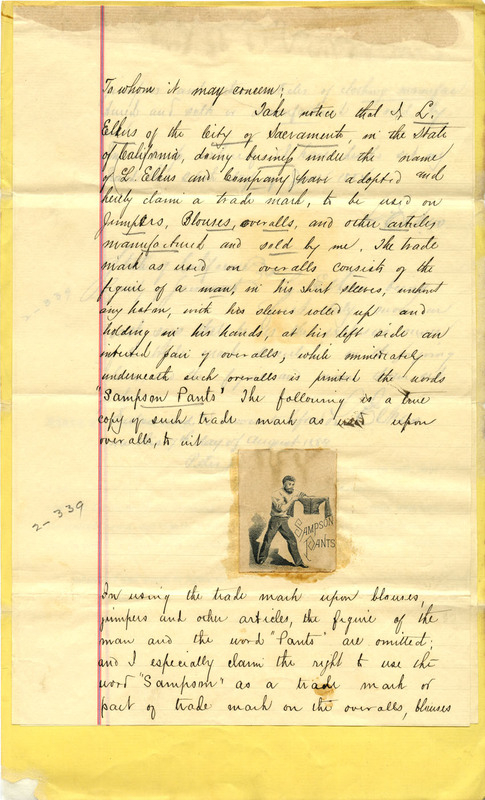 To whom it may concern:
Take notice that I L.
Elkus of the City of Sacramento, in the State
of California, doing business under the name
of L. Elkus and Company, have adopted and
hereby claim a trade mark, to be used on
Jumpers, Blouses, overalls, and other articles
manufactured and sold by me. The trade
mark as used on overalls consists of the
figure of a man, in his shirt sleeves, without
any hat on, with his sleeves rolled up and
holding in his hands, at his left side an
inverted pair of overalls, while immediately
underneath such overalls is printed the words
"Sampson Pants" The following is a true
copy of such trade mark as used upon
overalls, to wit
SAMPSON
PANTS
2-339
2-339
In using the trade mark upon blouses,
jumpers and other articles, the figure of the
man and the word "Pants" are omitted;
and I especially claim the right to use the
word "Sampson" as a trade mark or
part of trade mark on the overalls, blouses